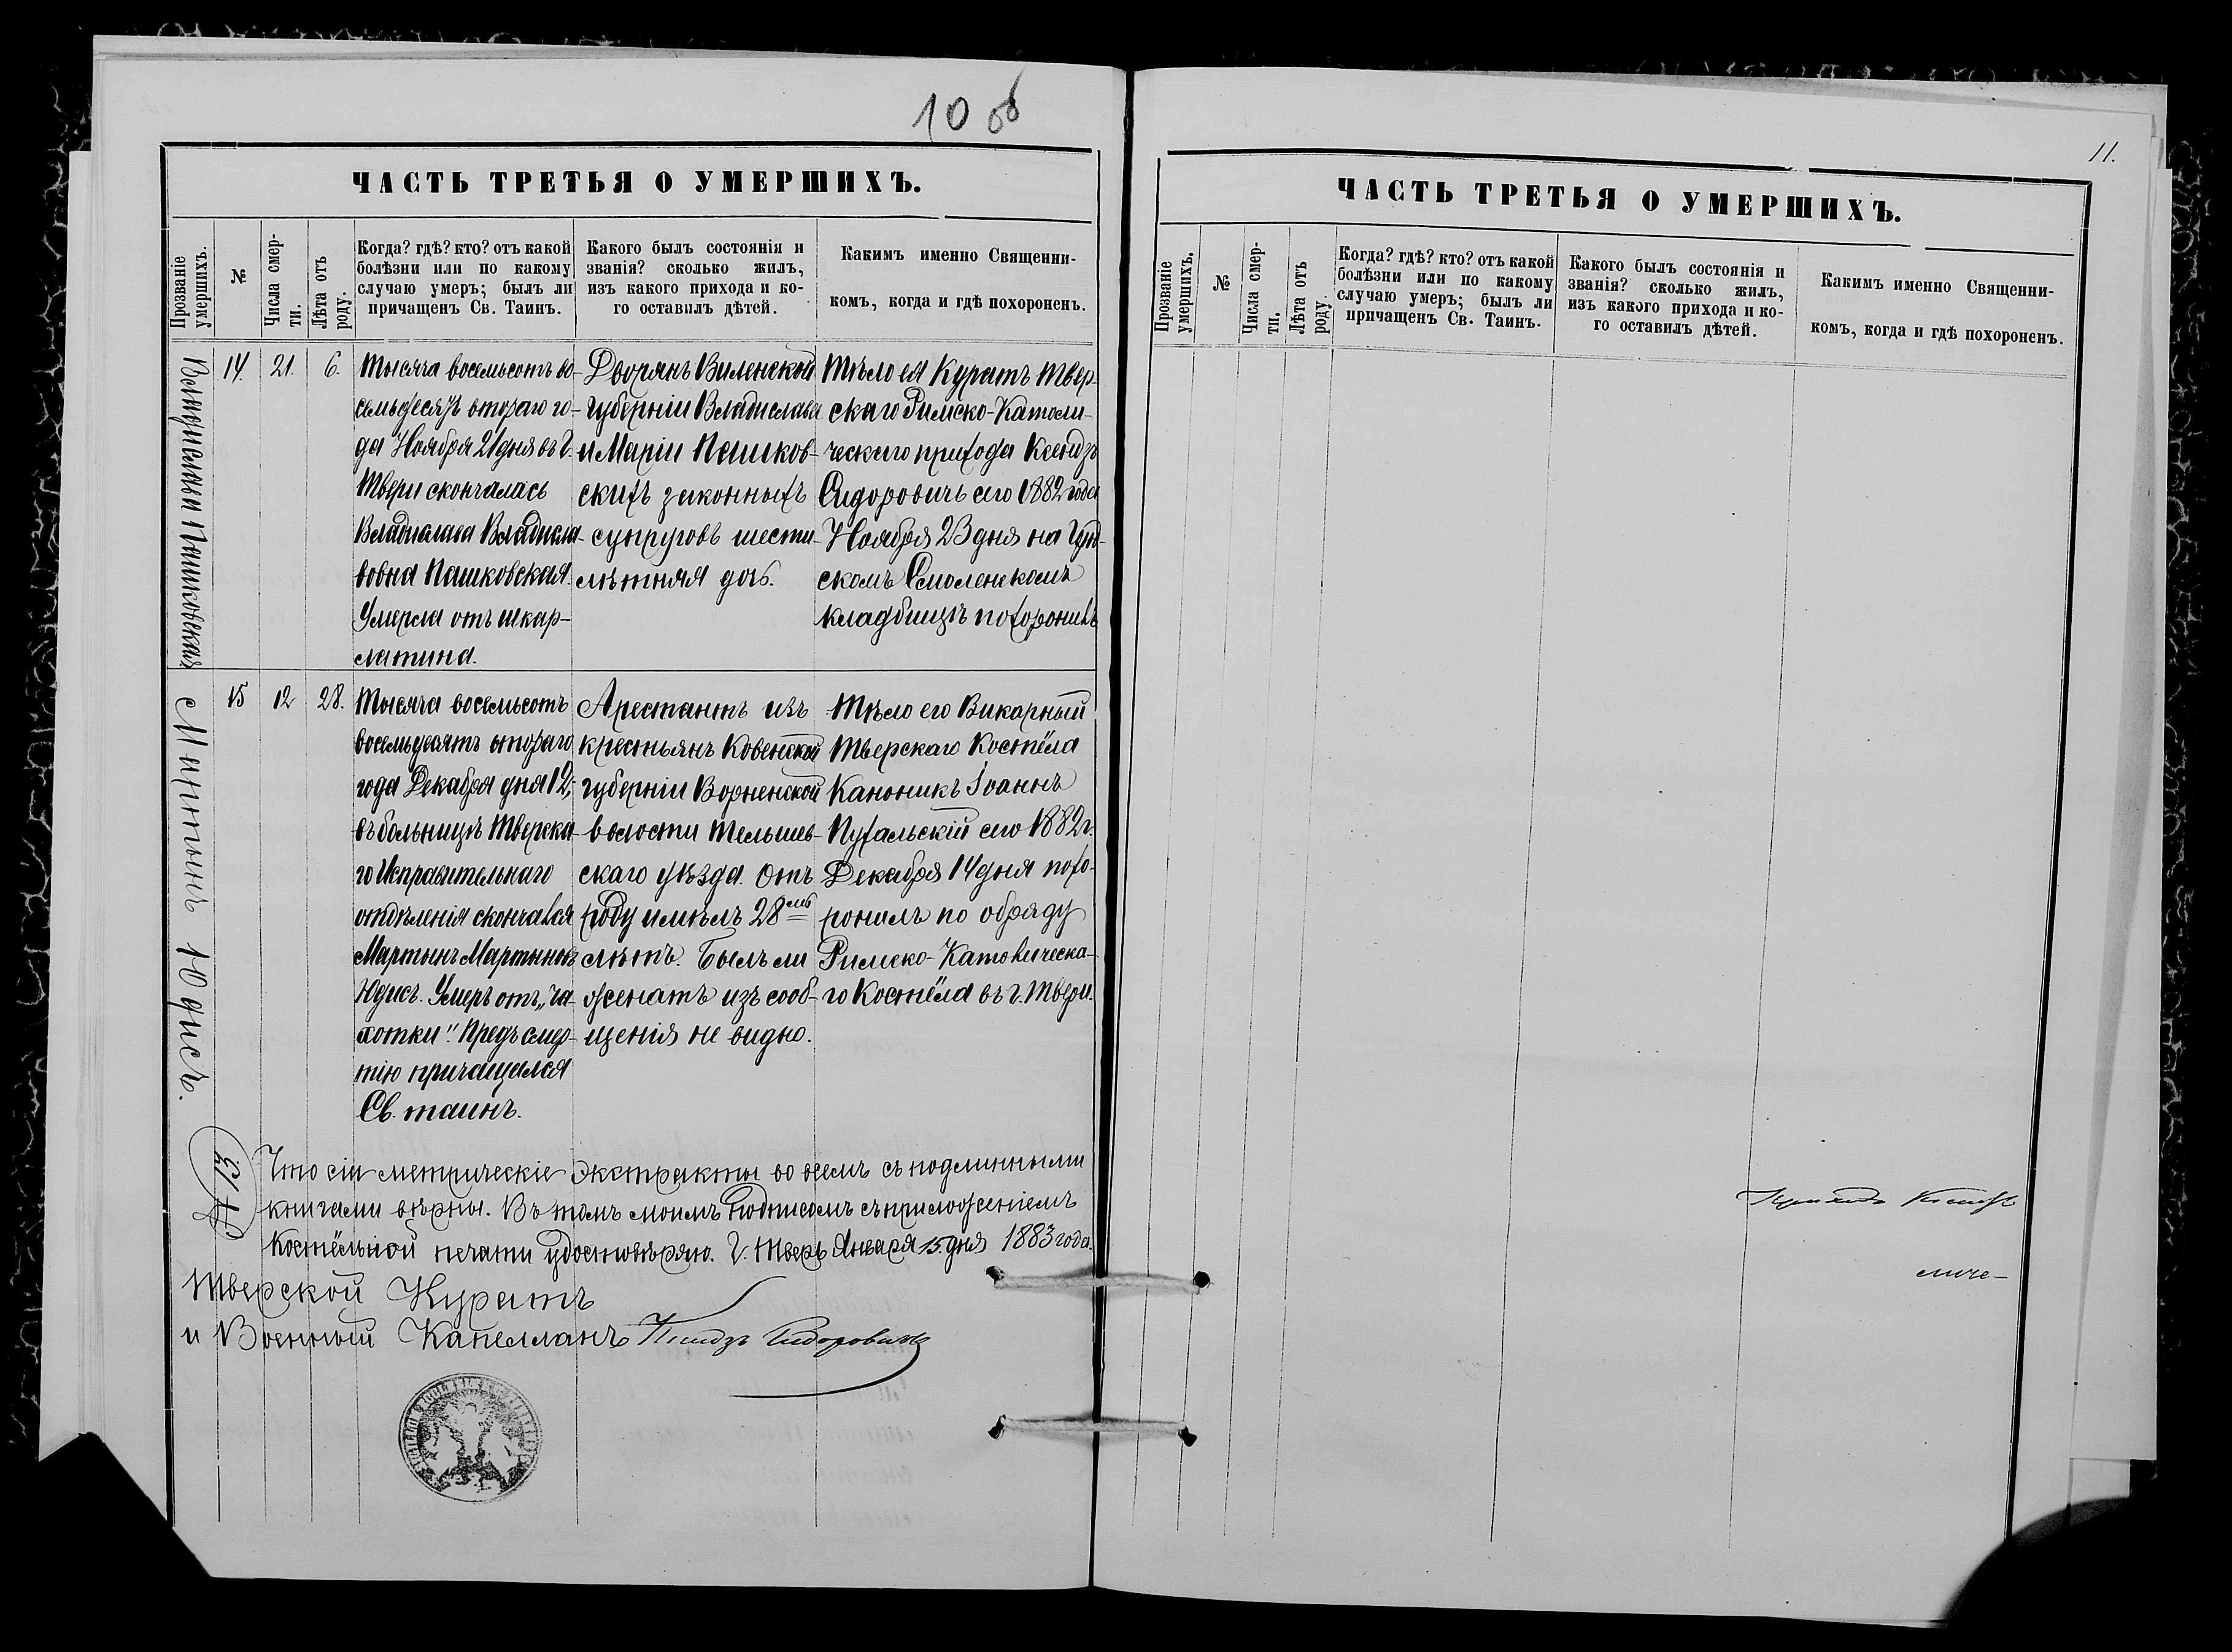 10 об
ЧАСТЬ ТРЕТЬЯ О УМЕРШИХЪ.
Прозваніе умершихъ.
№
Числа смер-
ти.
Лѣта отъ
роду.
Когда? гдѣ? кто? отъ какой
болѣзни или по какому
случаю умеръ; былъ ли
причащенъ Св. Таинъ.
Какого былъ состоянія и
званія? сколько жилъ,
изъ какого прихода и ко-
го оставилъ дѣтей.
Какимъ именно Священни-
комъ, когда и гдѣ похороненъ.
Владислава Пашковская
14.
21.
6.
Тысяча восемьсотъ во-
семьдесятъ втораго го-
да Ноября 21 дня въ г.
Твери скончалась
Владислава Владисла-
вовна Пашковская.
Умерла отъ шкар-
латина.
Дворянъ Виленской
губерніи Владислава
и Маріи Пашков-
скихъ законныхъ
супруговъ шести-
лѣтняя дочь.
Тѣло ея Куратъ Твер-
скаго Римско-Католи-
ческаго прихода Ксендзъ
Сидоровичъ сего 1882 года
Ноября 23 дня на
скомъ Смоленскомъ
кладбищѣ похоронилъ
Мартынъ Юдисъ.
15
12
28.
Тысяча восемьсотъ
восемьдесятъ втораго
года Декабря дня 12,
въ больницѣ Тверска-
го Исправительнаго
отдѣленія скончался
Мартынъ Мартыновъ
Юдисъ. Умеръ отъ „ча-
хотки". Предъ смер-
тію причащался
Св. таинъ.
Арестантъ изъ
крестьянъ Ковенской
губерніи Ворненской
волости Тельшев-
скаго уѣзда. Отъ
роду имѣлъ 28мь
лѣтъ. Былъ ли
женатъ изъ сооб-
щенія не видно.
Тѣло его Викарный
Тверскаго Костёла
Каноникъ Іоаннъ
Пухальскій сего 1882 г.
Декабря 14 дня похо-
ронилъ по обряду
Римско-Католическа-
го Костёла въ г. Твери.
Что сіи метрическіе экстракты во всемъ съ подлинными
книгами вѣрны. Въ томъ моимъ подписомъ съ приложеніемъ
Костёльной печати удостовѣряю. Г. Тверь Января 15 дня 1883 года.
Тверской Куратъ
и Военный Капелланъ Ксендзъ Сидоровичъ
11.
ЧАСТЬ ТРЕТЬЯ О УМЕРШИХЪ.
Прозваніе
умершихъ.
№
Числа смер-
ти.
Лѣта отъ
роду.
Когда? гдѣ? кто? отъ какой
болѣзни или по какому
случаю умеръ; былъ ли
причащенъ Св. Таинъ.
Какого былъ состоянія и
званія? сколько жилъ,
изъ какого прихода и ко-
го оставилъ дѣтей.
Какимъ именно Священни-
комъ, когда и гдѣ похороненъ.